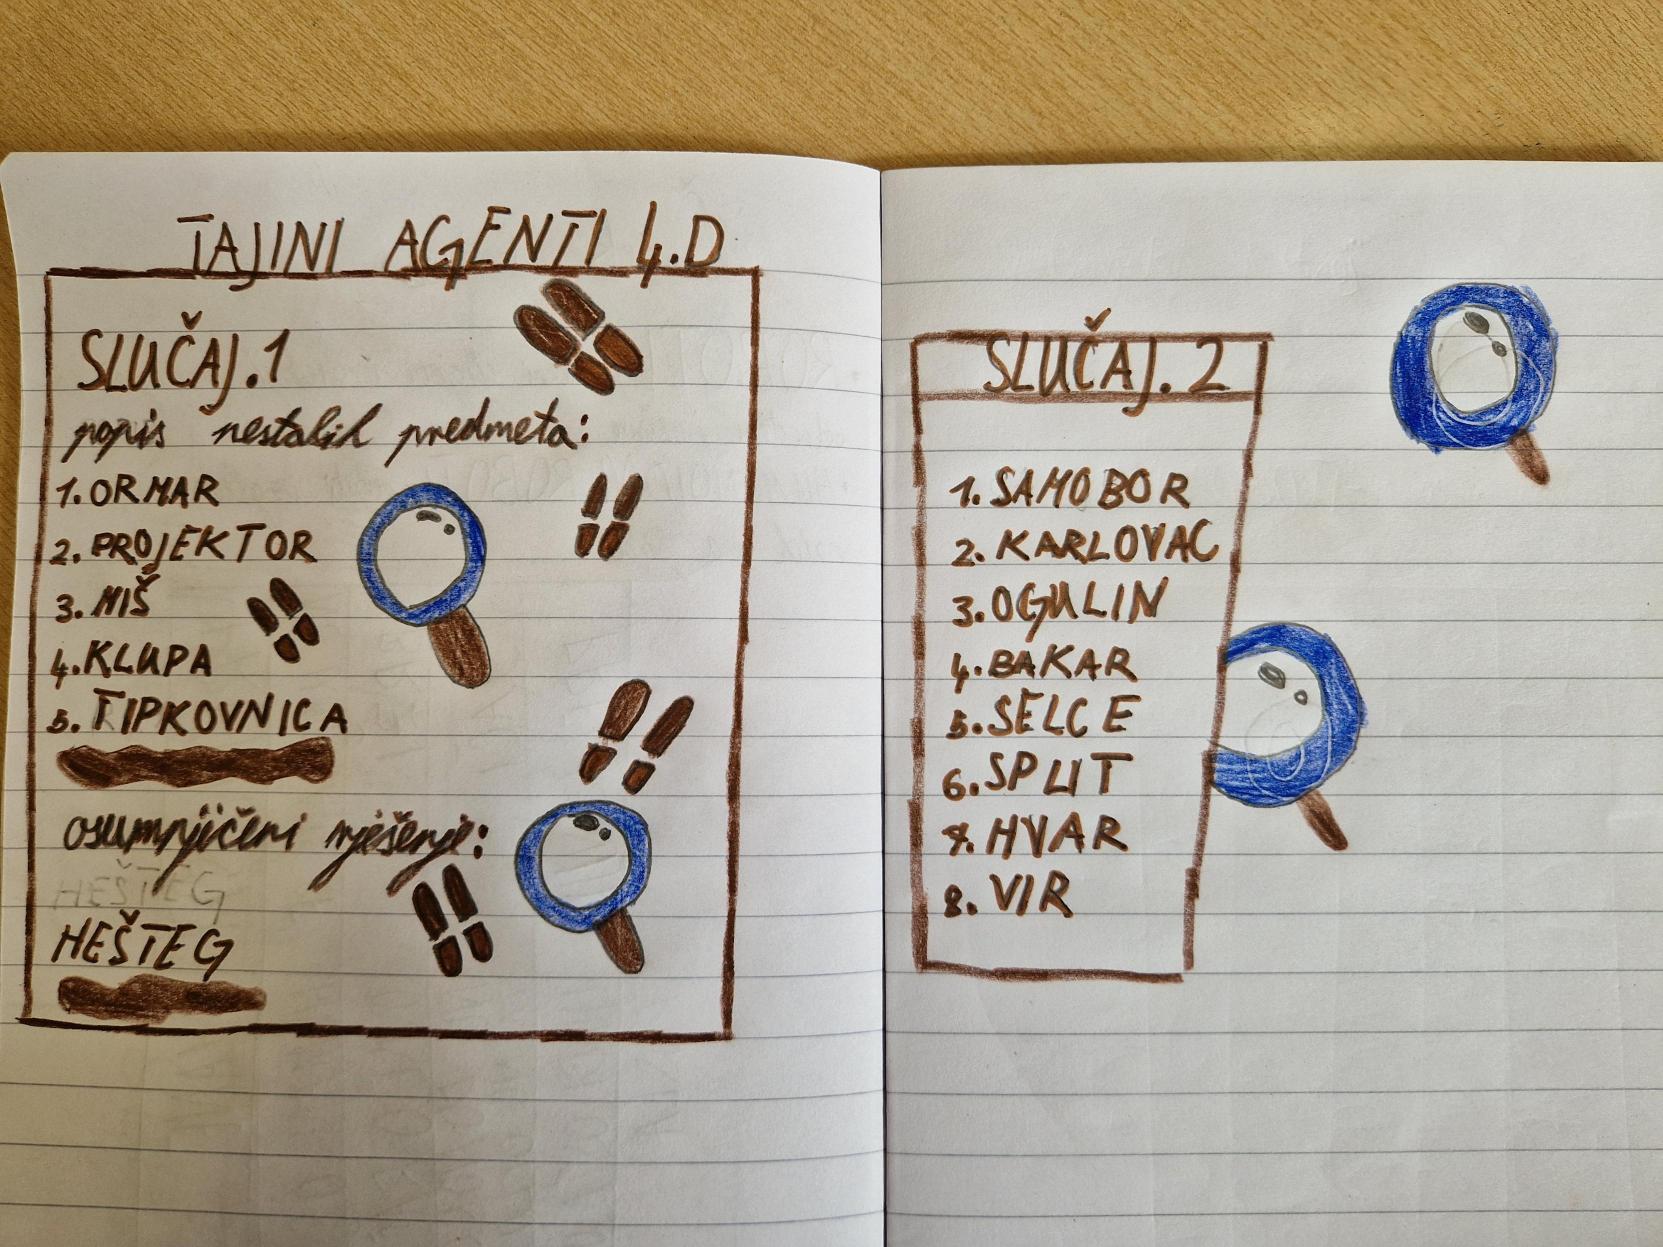 TAJINI AGENTI 4.D
SLUČAJ.1
popis nestalih predmeta:
1. ORMAR
2. PROJEKTOR
3. MIŠ
4. KLUPA
5. TIPKOVNICA
osumnjičeni rješenje:
HEŠTEG
HEŠTEG
SLUČAJ. 2
1. SAMOBOR
2. KARLOVAC
3. OGULIN
4. BAKAR
5. SELCE
6. SPLIT
7. HVAR
8. VIR